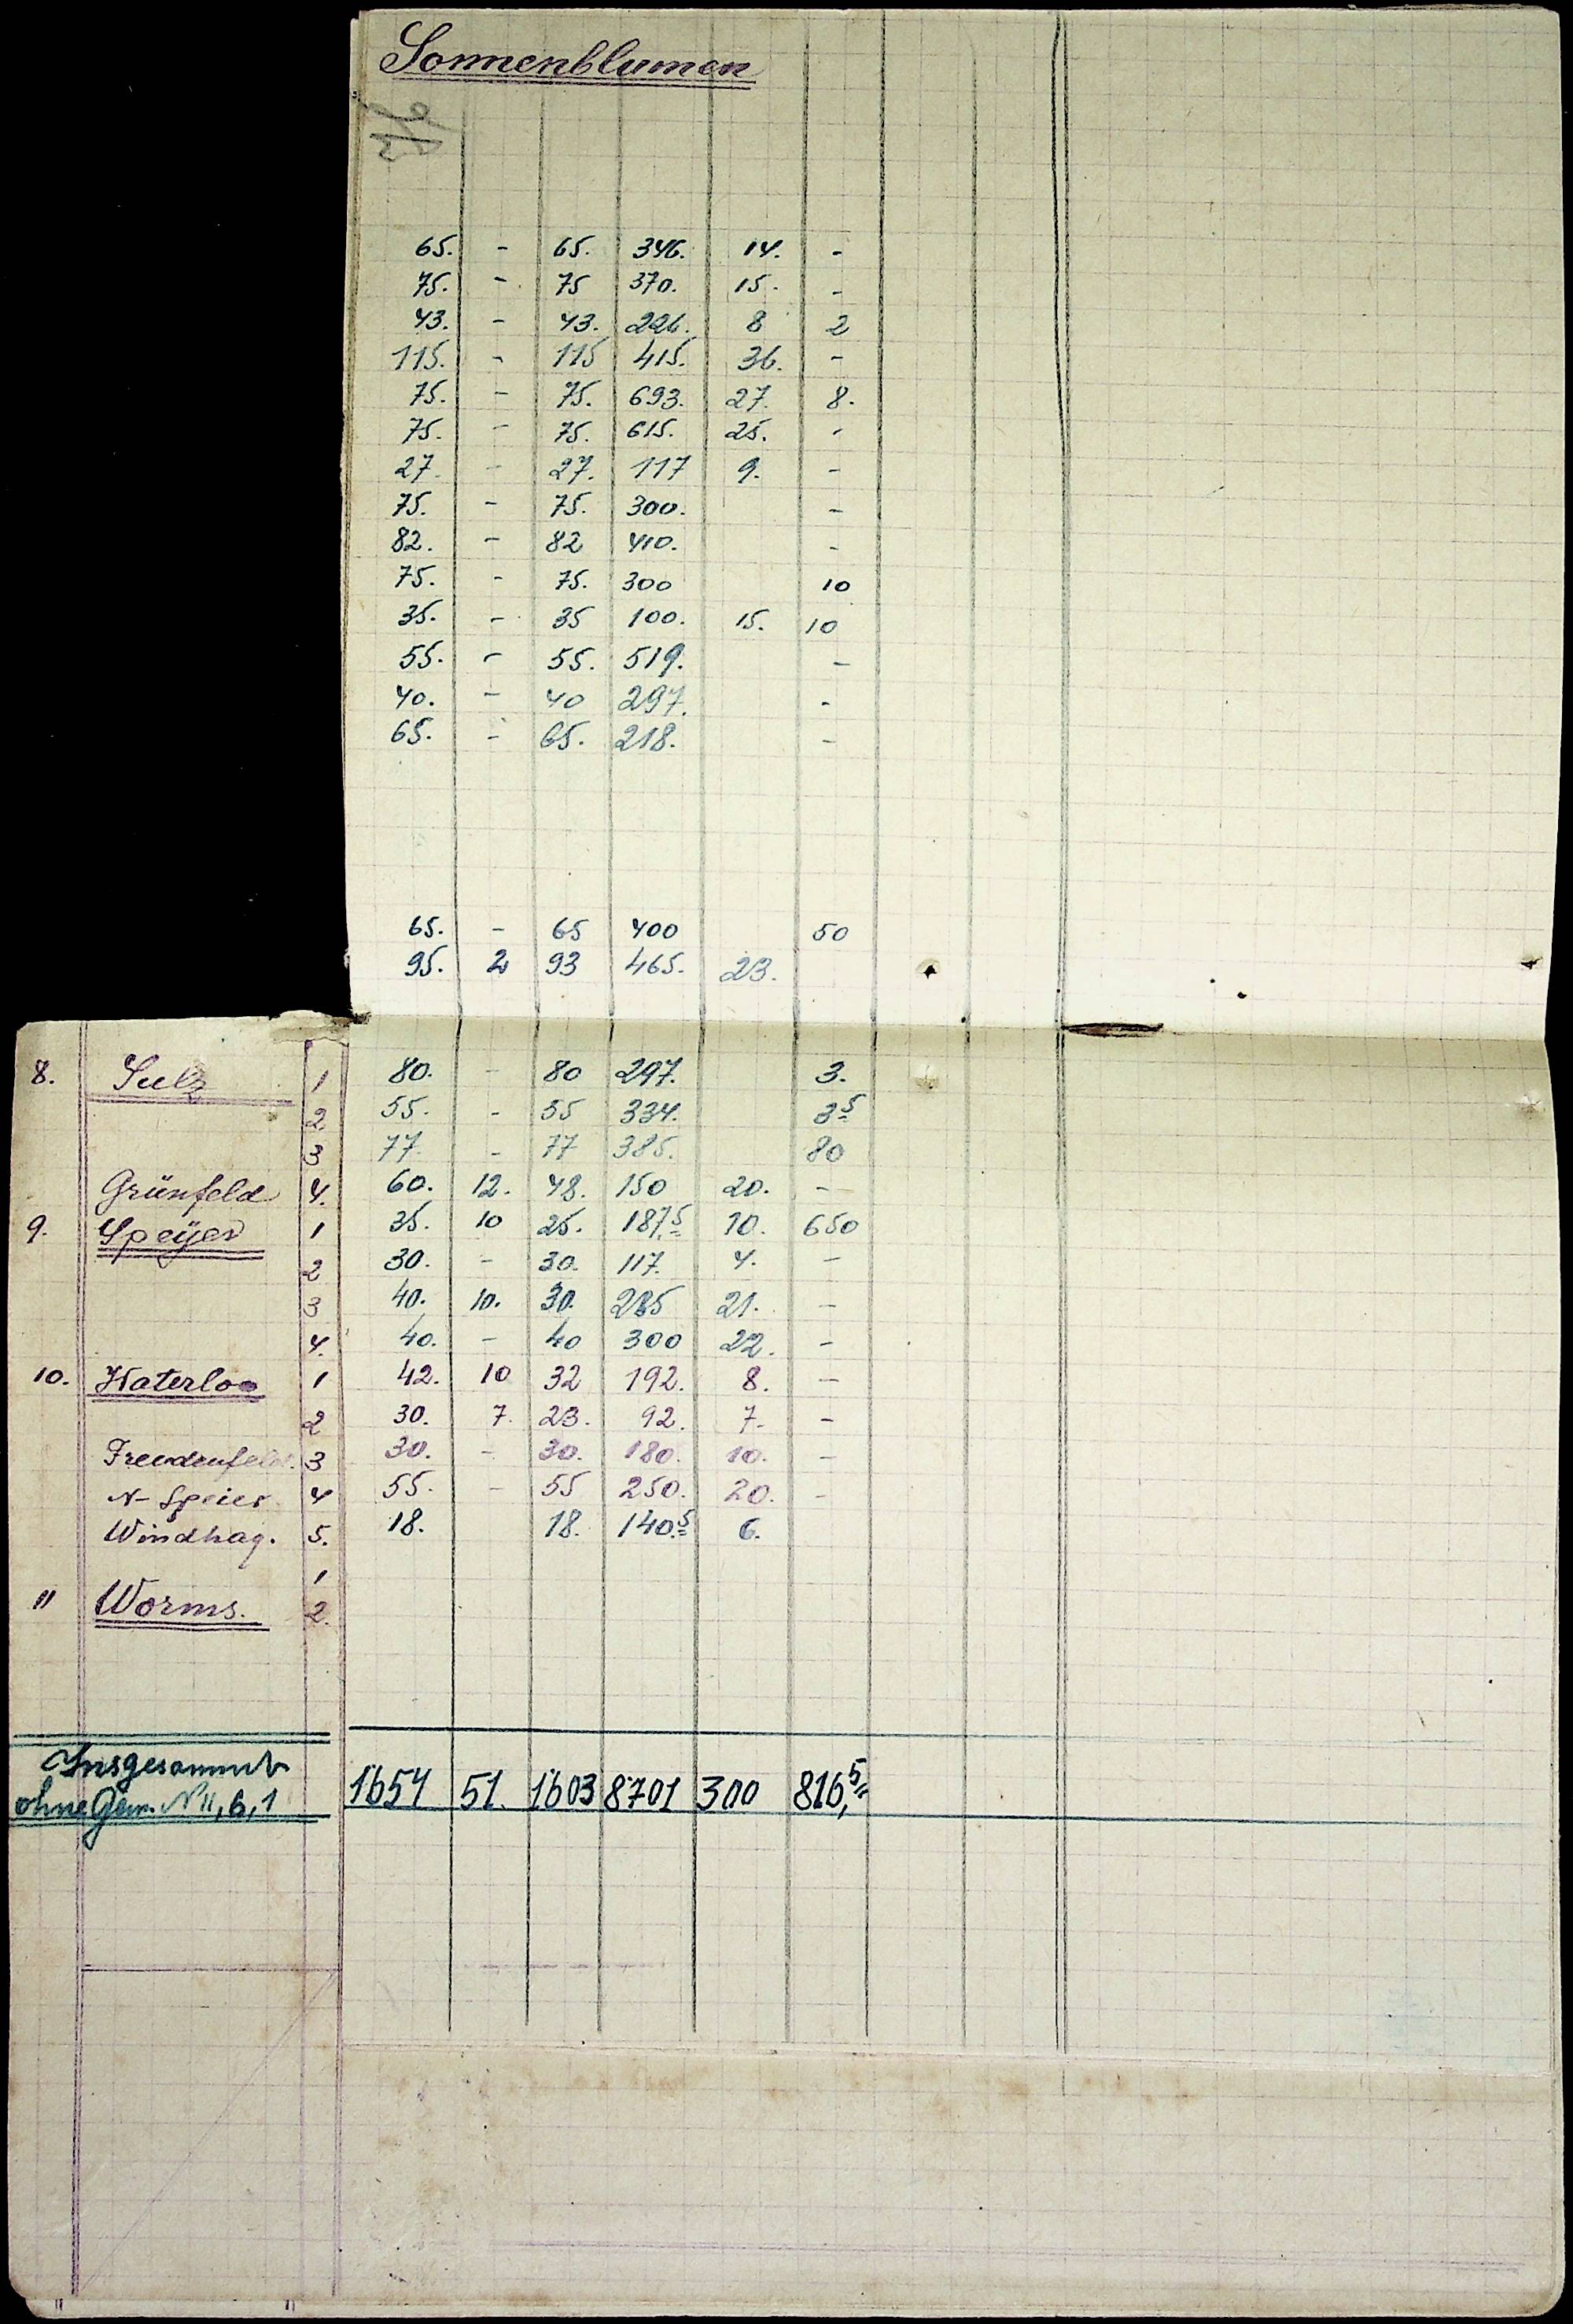 Sonnenblumen
ha
65. - 65. 346. 14. -
75. - 75 370. 15. -
43. - 43. 226. 8 2
115. - 115 415. 36. -
75. - 75. 693. 27. 8.
75. - 75. 615. 25. -
27. - 27. 117 9. -
75. - 75. 300. -
82. - 82 410. -
75. - 75. 300 10
35. - 35 100. 15. 10
55. - 55. 519. -
40. - 40 297. -
65. - 65. 218. -
65. - 65 400 50
95. 2 93 465. 23.
8. Sulz 1 80. - 80 297. 3.
2 55. - 55 334. 3⁵
3 77. - 77 385. 80
Grünfeld 4. 60. 12. 48. 150 20. -
9. Speyer 1 35. 10 25. 187,⁵ 10. 650
2 30. - 30. 117. 4. -
3 40. 10. 30. 285 21. -
4. 40. - 40 300 22. -
10. Waterloo 1 42. 10 32 192. 8. -
2 30. 7. 23. 92. 7. -
Freudenfeld. 3 30. - 30. 180. 10. -
N-Speier 4 55. - 55 250. 20. -
Windhag. 5. 18. 18. 140.⁵ 6.
1
11 Worms. 2.
Insgesammt
ohne Gem. N 11, 6, 1 1654 51. 1603 8701 300 816,⁵